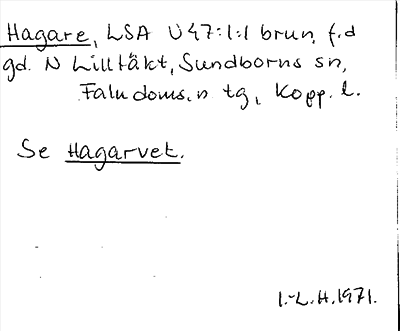 Hagare, LSA U47:1:1 brun, f.d
gd. N Lilltäkt, Sundborns sn,
Falu doms.n tg, Kopp. l.
Se Hagarvet.
I.-L.H.1971.